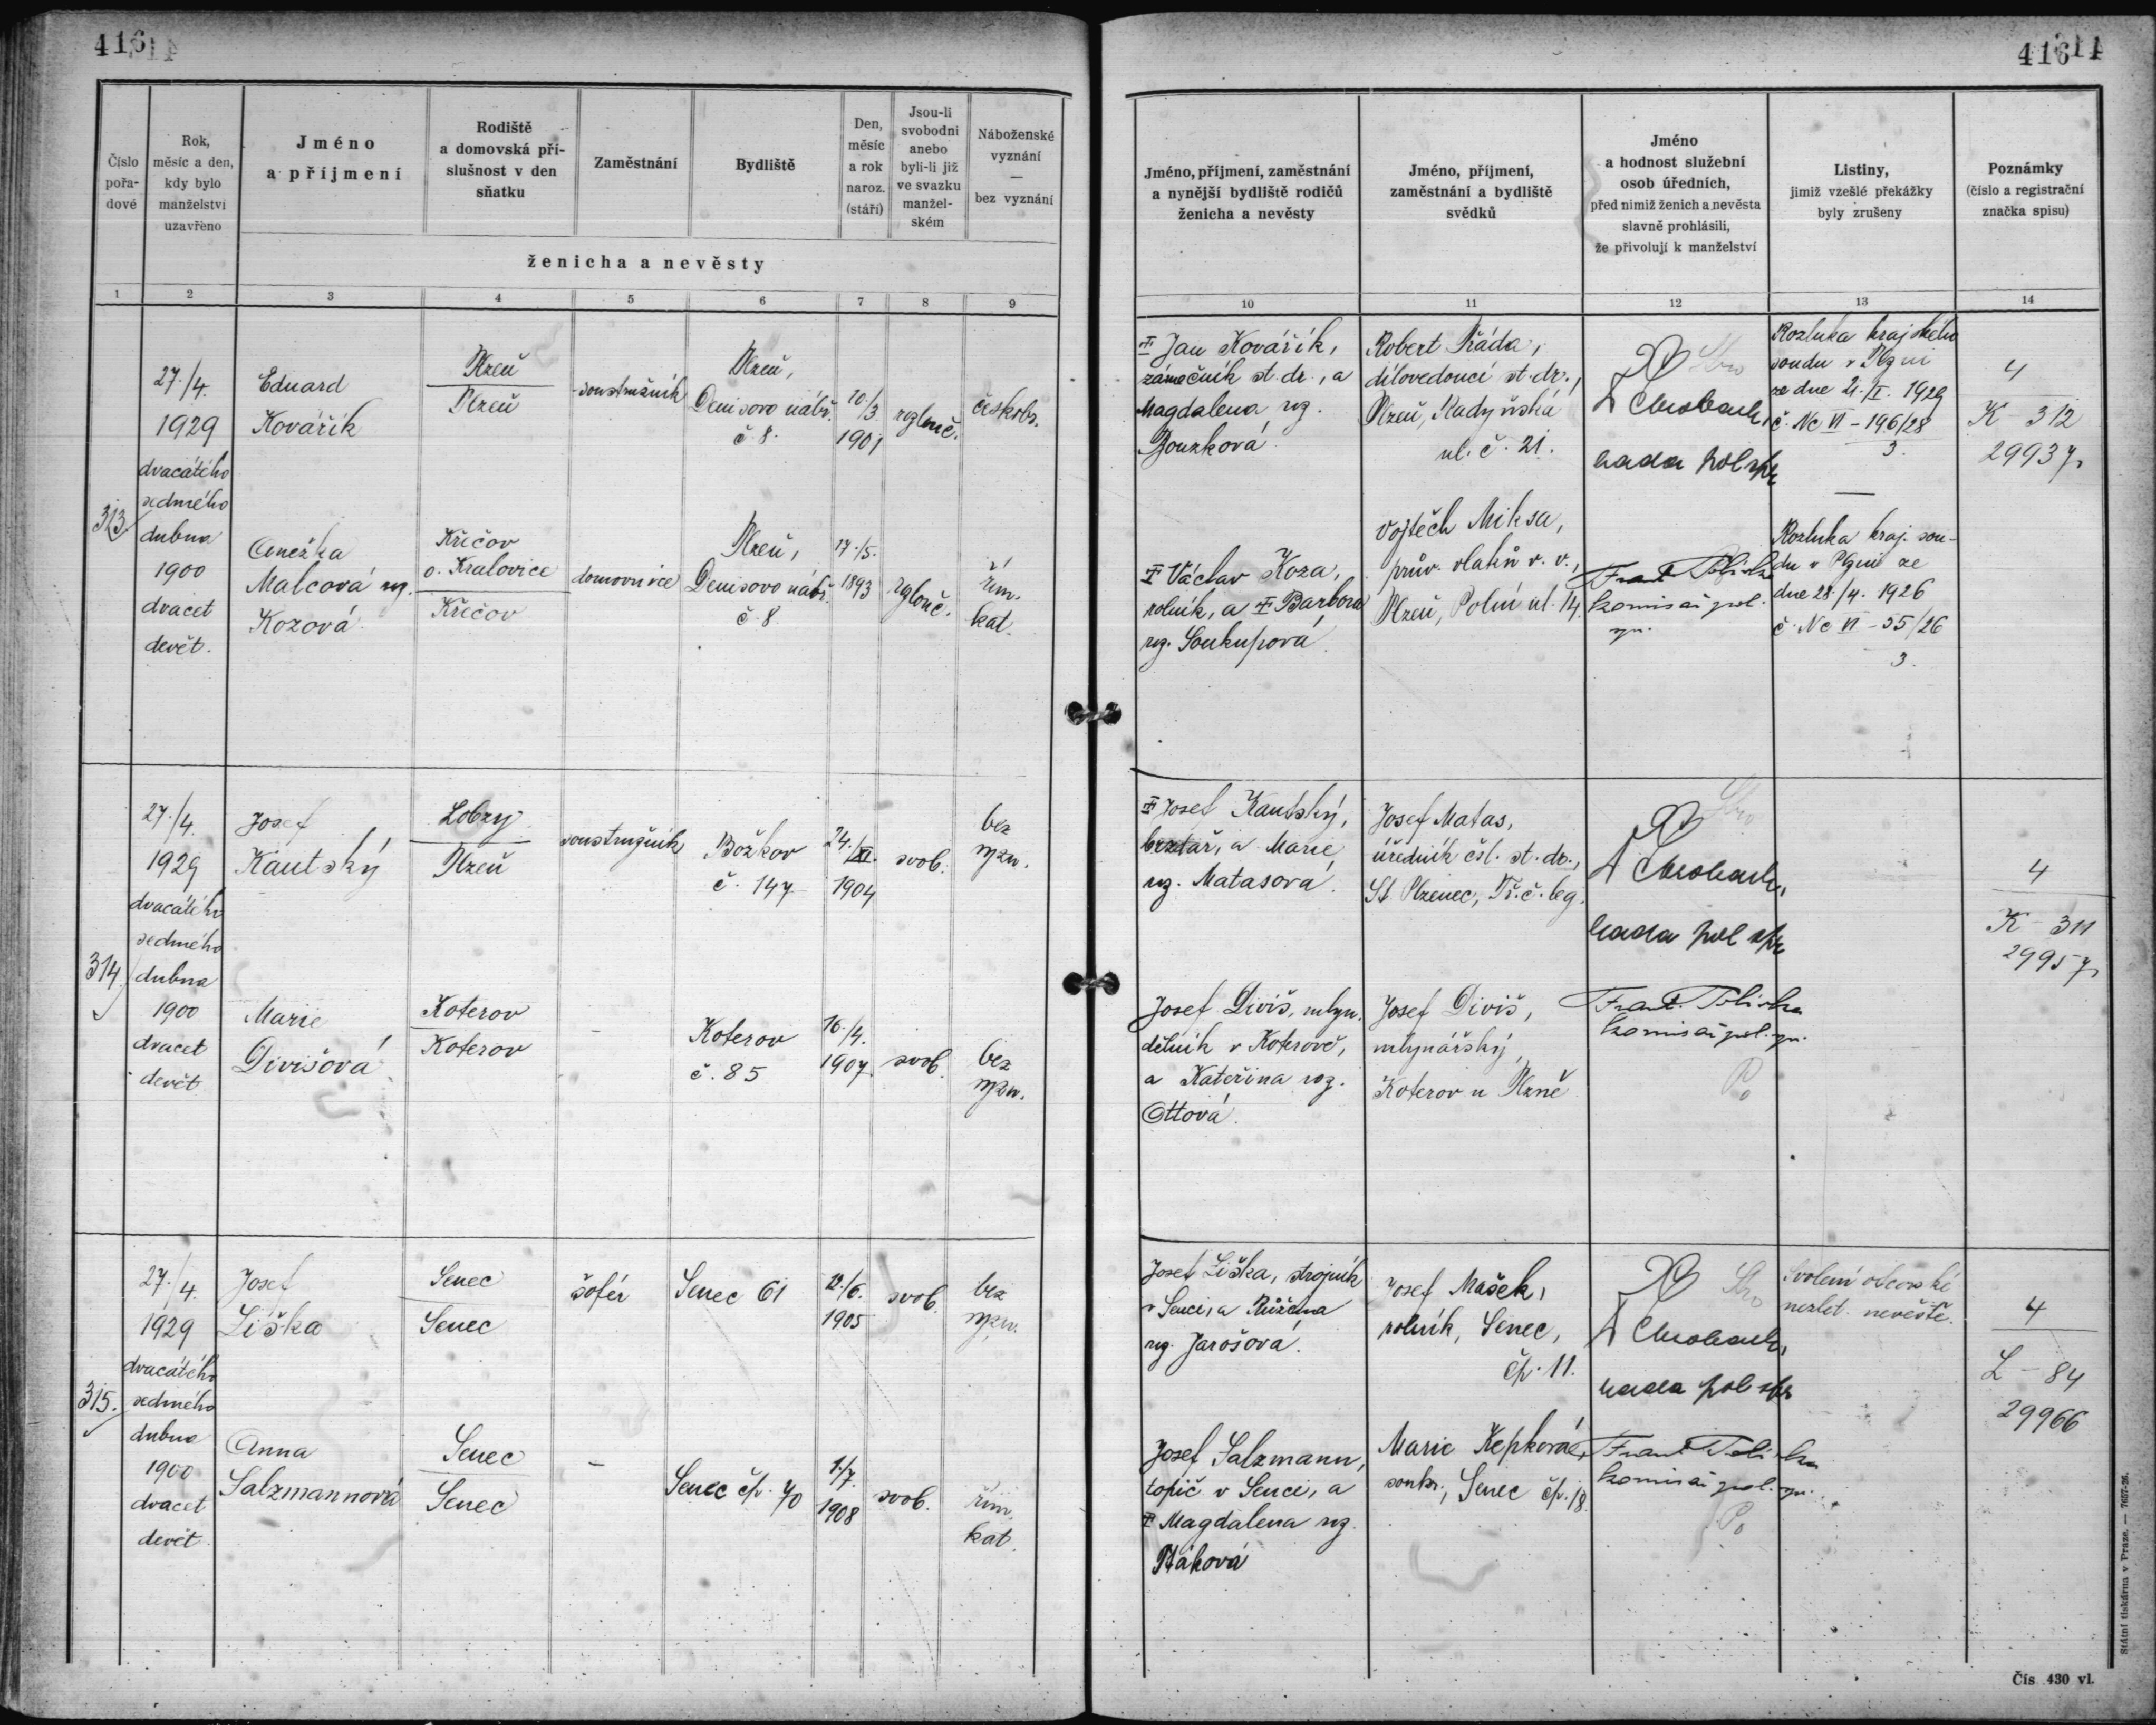 416
416
Číslo
pořa-
dové
Rok,
měsíc a den,
kdy bylo
manželství
uzavřeno
Jméno
a příjmení
Rodiště
a domovská pří-
slušnost v den
sňatku
Zaměstnání
Bydliště
Den,
měsíc
a rok
naroz.
(stáří)
Jsou-li
svobodni
anebo
byli-li již
ve svazku
manžel-
ském
Náboženské
vyznání
—
bez vyznání
ženicha a nevěsty
1 2 3 4 5 6 7 8 9
Jméno, příjmení, zaměstnání
a nynější bydliště rodičů
ženicha a nevěsty
Jméno, příjmení,
zaměstnání a bydliště
svědků
Jméno
a hodnost služební
osob úředních,
před nimiž ženich a nevěsta
slavně prohlásili,
že přivolují k manželství
Listiny,
jimiž vzešlé překážky
byly zrušeny
Poznámky
(číslo a registrační
značka spisu)
10 11 12 13 14
313
27./4.
1929
dvacátého
sedmého
dubna
1900
dvacet
devět.
Eduard
Kovářík
Plzeň
Plzeň
soustružník
Plzeň,
Denisovo nábř.
č. 8.
20./3.
1901
rozlouč.
českobr.
Anežka
Malcová roz.
Kozová
Křičov
o. Kralovice
Křičov
domovnice
Plzeň,
Denisovo nábř.
č. 8
17./5.
1893
rozlouč.
řím.
kat.
Jan Kovářík,
zámečník st. dr., a
Magdalena roz.
Bouzková
Robert Řáda,
dílovedoucí st. dr.,
Plzeň, Radyňská
ul. č. 21.
rada pol. spr.
Rozluka krajského
soudu v Plzni
ze dne 21./II. 1929
č. Nc VI – 196/28
3.
4
K – 312
29937
Václav Koza,
rolník, a Barbora
roz. Soukupová.
Vojtěch Miksa,
prův. vlaků v. v.,
Plzeň, Polní ul. 14.
komisař pol.
spr.
Rozluka kraj. sou-
du v Plzni ze
dne 28./4. 1926
č. Nc VI – 55/26
3.
314.
27./4.
1929
dvacátého
sedmého
dubna
1900
dvacet
devět
Josef
Kautský
Lobzy
Plzeň
soustružník
Božkov
č. 147
24./XI.
1904
svob.
bez
vyzn.
Marie
Divišová
Koterov
Koterov
–
Koterov
č. 85
16./4.
1907.
svob.
bez
vyzn.
Josef Kautský,
brzdař, a Marie
roz. Matasová.
Josef Matas,
úředník čsl. st. dr.,
St. Plzenec, Tř. č. leg.
rada pol. spr.
4
K – 311
29957
Josef Diviš, mlyn.
dělník v Koterově,
a Kateřina roz.
Ottová.
Josef Diviš,
mlynářský,
Koterov u Plzně
komisař pol. spr.
315.
27./4.
1929
dvacátého
sedmého
dubna
1900
dvacet
devět
Josef
Liška
Senec
Senec
šofér
Senec 61
1905
svob.
bez
vyzn.
Anna
Salzmannová
Senec
Senec
–
Senec čp. 70
1./7.
1908
svob.
řím.
kat.
Josef Liška, strojník
v Senci, a Růžena
roz. Jarošová.
Josef Mašek,
rolník, Senec,
čp. 11.
rada pol. spr.
Svolení otcovské
nezlet. nevěstě.
4
L – 84
29966
Josef Salzmann,
topič v Senci, a
Magdalena roz.
Ptáková
Marie Kepková,
soukr., Senec čp. 18.
komisař pol. spr.
Státní tiskárna v Praze. — 7657-26.
Čís 430 vl.